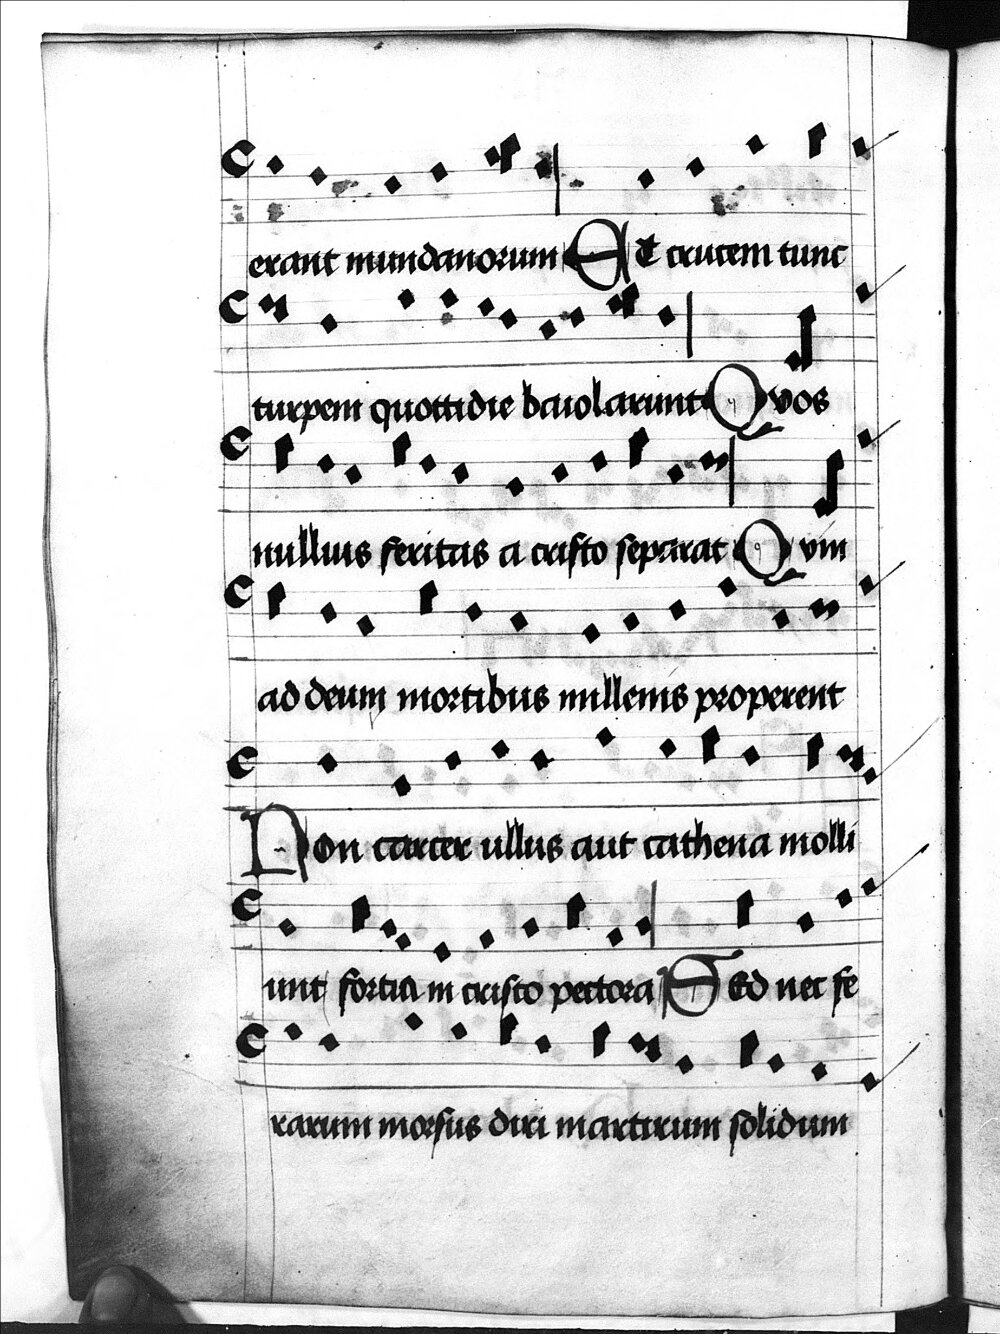 erant mundanorum Et crucem tunc
turpem quottidie baiolarunt Quos
nulluis feritas a cristo separat Quin
ad deum mortibus millenis properent
Non carcer ullus aut cathena molli
unt fortia in cristo pectora Sed nec fe
rarum morsus diri martirum solidum